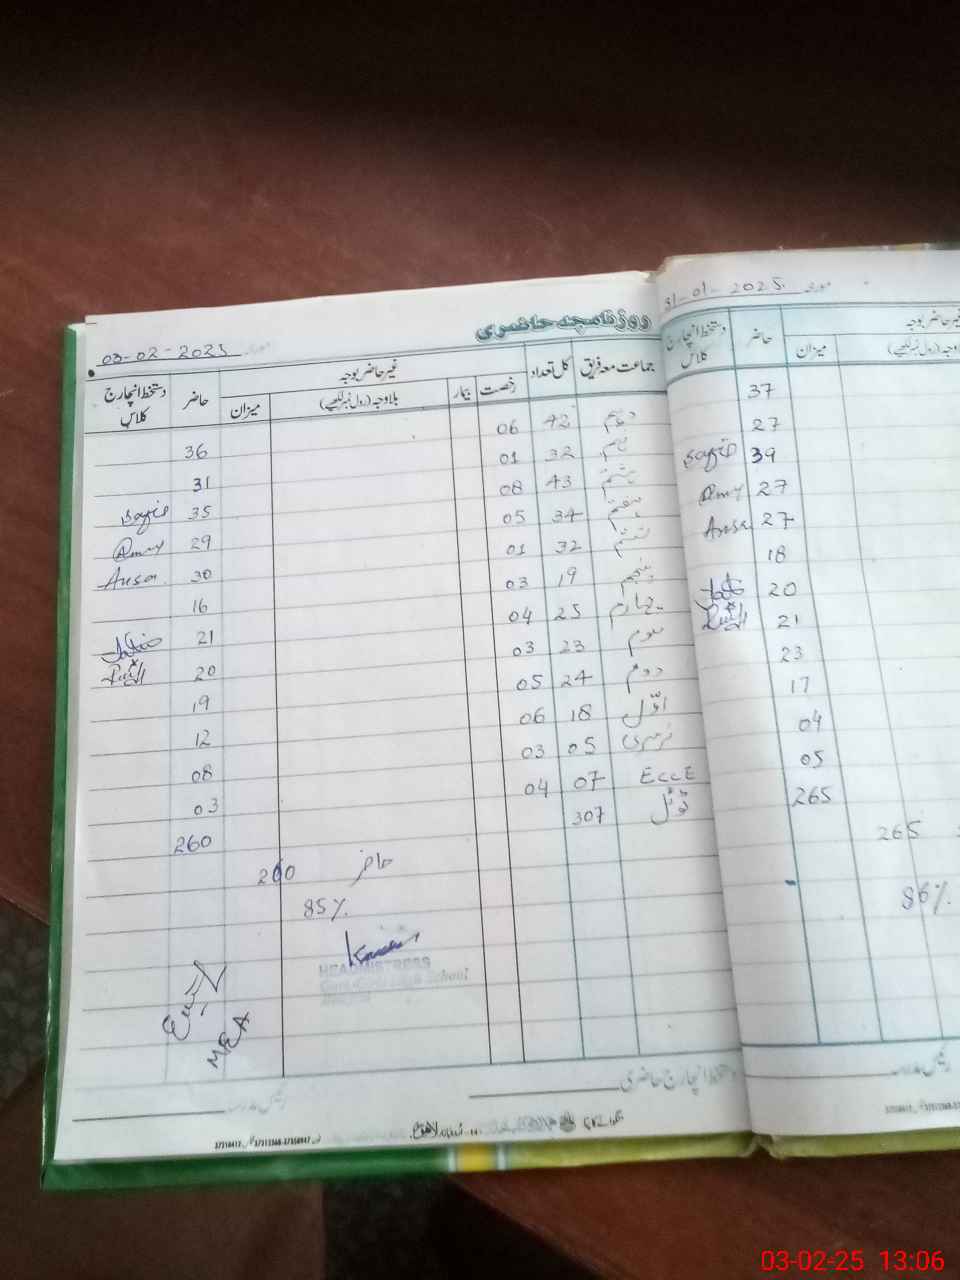 روزنامچہ حاضری
03-02-2025 مورخہ
جماعت معہ فریق کل تعداد رخصت بیمار غیر حاضر بوجہ حاضر دستخط انچارج کلاس
بلاوجہ (رول نمبر لکھیے) میزان
دہم 42 06 36
نہم 32 01 31
ہشتم 43 08 35
ہفتم 34 05 29
ششم 32 01 30
پنجم 19 03 16
چہارم 25 04 21
سوم 23 03 20
دوم 24 05 19
اوّل 18 06 12
نرسری 05 03 08
ECCE 07 04 03
ٹوٹل 307 260
حاضر 260
85%
HEADMISTRESS
High School
MEA
دستخط انچارج حاضری
رئیس مدرسہ
31-01-2025 مورخہ
غیر حاضر بوجہ حاضر دستخط انچارج کلاس
میزان
37
27
39
27
27
18
20
21
23
17
04
05
265
265
86%
رئیس مدرسہ
03-02-25 13:06